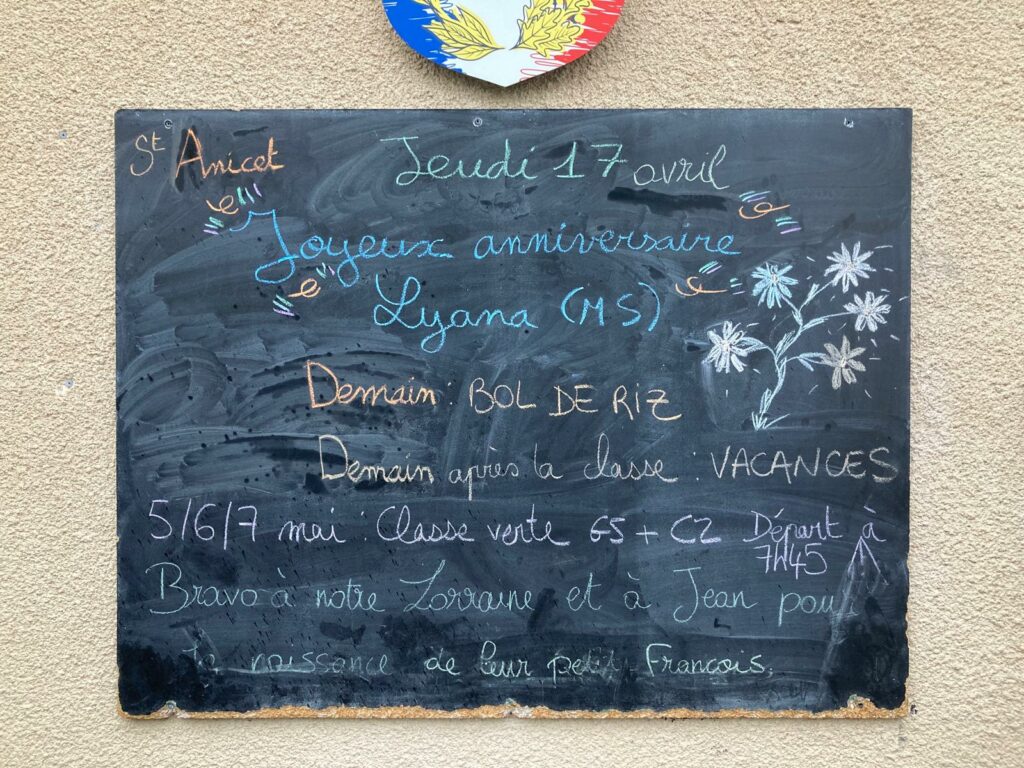 St Anicet
Jeudi 17 avril
Joyeux anniversaire
Lyana (MS)
Demain : BOL DE RIZ
Demain après la classe : VACANCES
5/6/7 mai : Classe verte GS + C2 Départ à
7H45
Bravo à notre Lorraine et à Jean pour
la naissance de leur petit François.